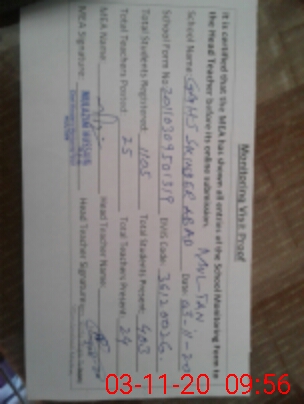 Monitoring Visit Proof
It is certified that the MEA has shown all entries of the School Monitoring Form to
the Head Teacher before its online submission.
School Name: GGHS SIKANDER ABAD MULTAN Date: 03-11-20
School Form No: EMIS Code: 36120026
Total Students Registered: 1105 Total Students Present: 403
Total Teachers Posted: 25 Total Teachers Present: 24
MEA Name: Head Teacher Name:
MEA Signature: Head Teacher Signature:
03-11-20 09:56